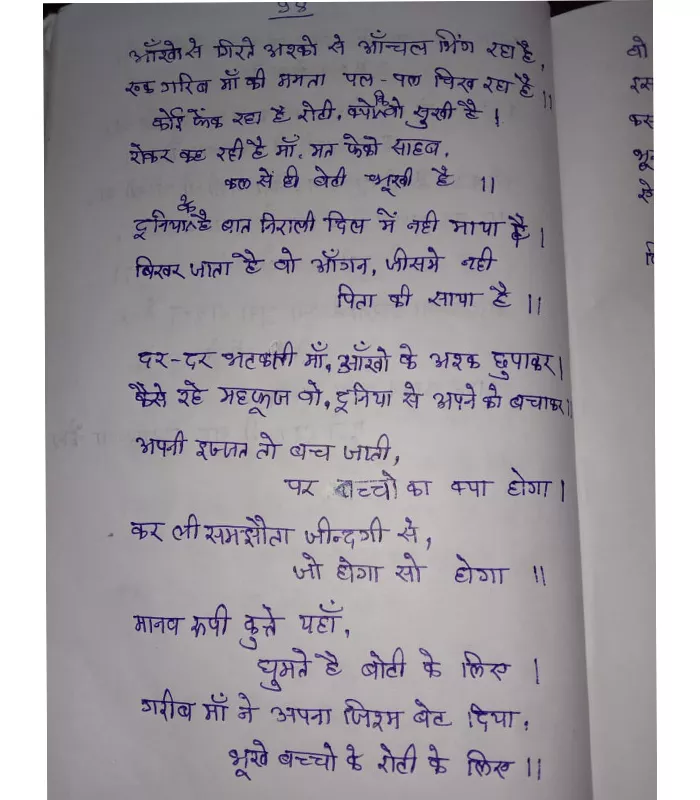 98
आँखो से गिरते अश्को से आँच्चल भिंग रहा है,
एक गरिब माँ की ममता पल-पल चिख रहा है ||
कोई फेंक रहा है रोटी, क्योकि वो सुखी है |
रोकर कह रही है माँ, मत फेको साहब,
कल से ही बेटी भूखी है ||
दुनिया के है बात निराली दिल में नही माया है |
बिखर जाता है वो आँगन, जीसमे नही
पिता की साया है ||
दर-दर भटकाती माँ, आँखो के अश्क छुपाकर |
कैसे रहे महफूज वो, दुनिया से अपने को बचाकर ||
अपनी इज्जत तो बच जाती,
पर बच्चो का क्या होगा |
कर ली समझौता जीन्दगी से,
जो होगा सो होगा ||
मानव रूपी कुत्ते यहाँ,
घुमते है बोटी के लिए |
गरीब माँ ने अपना जिश्म बेट दिया,
भूखे बच्चो के रोटी के लिए ||
वो
इस
कस
भू